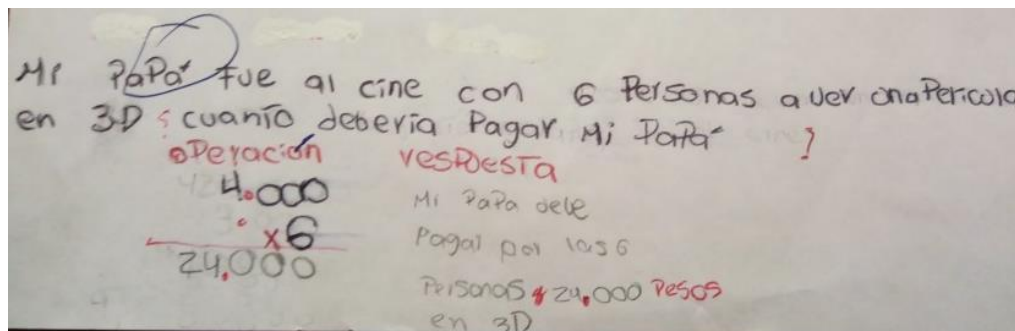 Mi PaPá fue al cine con 6 Personas a ver una Pericola
en 3D ¿cuanto deberia Pagar Mi PaPá ?
oPeración
4.000
x6
24.000
resPuesta
Mi PaPa debe
Pagar por las 6
Personas $ 24.000 Pesos
en 3D